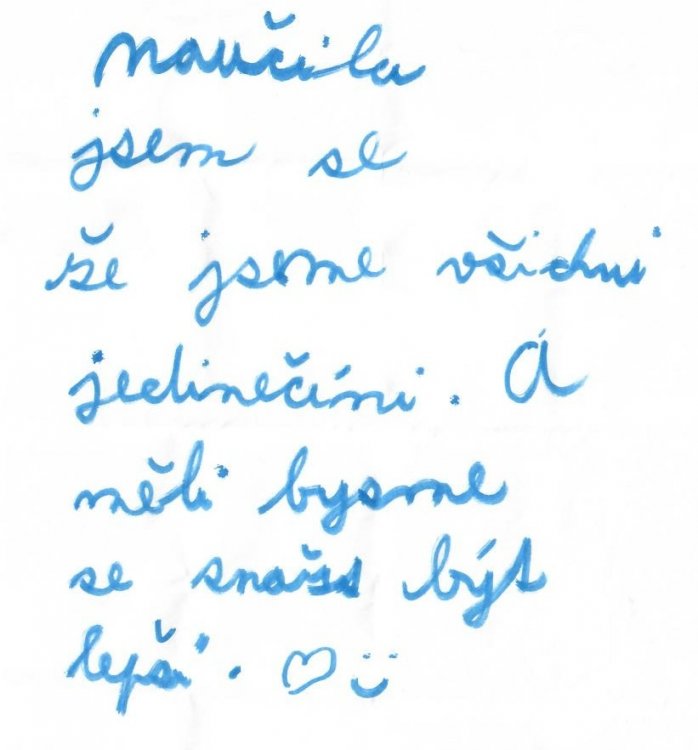 Naučila
jsem se
že jsme všichni
jedinečíni. A
měli bysme
se být
lepší.